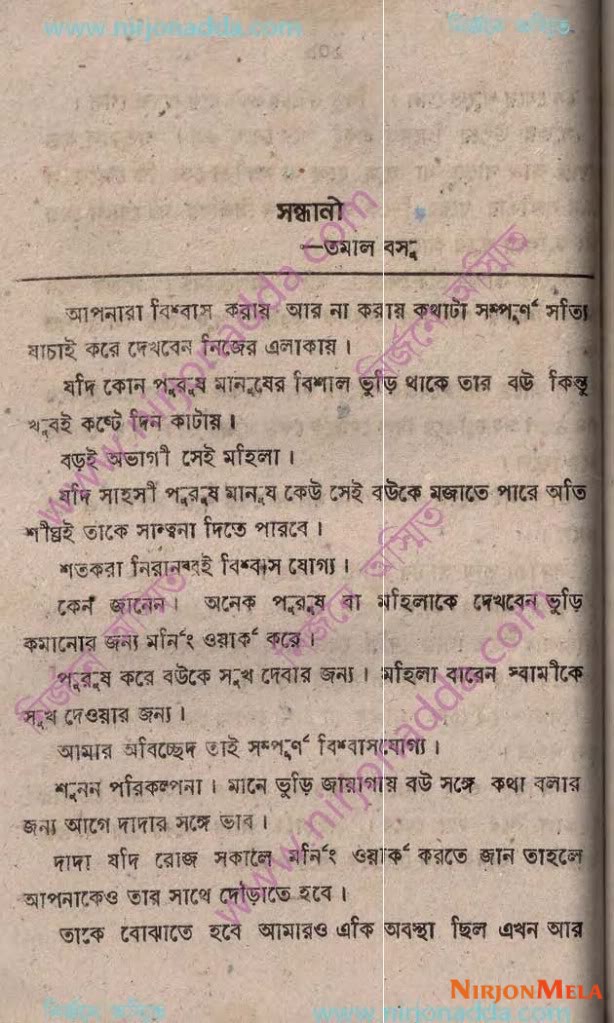 www.nirjonadda.com
নির্জনে অস্মিত
সন্ধানী
—তমাল বসু
আপনারা বিশ্বাস করায় আর না করায় কথাটা সম্পূর্ণ সত্যি
যাচাই করে দেখবেন নিজের এলাকায়।
যদি কোন পুরুষ মানুষের বিশাল ভুড়ি থাকে তার বউ কিন্তু
খুবই কষ্টে দিন কাটায়।
বড়ই অভাগী সেই মহিলা।
যদি সাহসী পুরুষ মানুষ কেউ সেই বউকে মজাতে পারে অতি
শীঘ্রই তাকে সান্ত্বনা দিতে পারবে।
শতকরা নিরানব্বই বিশ্বাস যোগ্য।
কেন জানেন। অনেক পুরুষ বা মহিলাকে দেখবেন ভুড়ি
কমানোর জন্য মর্নিং ওয়ার্ক করে।
পুরুষ করে বউকে সুখ দেবার জন্য। মহিলা বারেন স্বামীকে
সুখ দেওয়ার জন্য।
আমার অবিচ্ছেদ তাই সম্পূর্ণ বিশ্বাসযোগ্য।
শুনন পরিকল্পনা। মানে ভুড়ি জারাগায় বউ সঙ্গে কথা বলার
জন্য আগে দাদার সঙ্গে ভাব।
দাদা যদি রোজ সকালে মর্নিং ওয়ার্ক করতে জান তাহলে
আপনাকেও তার সাথে দৌড়াতে হবে।
তাকে বোঝাতে হবে আমারও একি অবস্থা ছিল এখন আর
www.nirjonadda.com
নির্জনে অস্মিত
www.nirjonadda.com
নির্জনে অস্মিত
NIRJONMELA
নির্জনে অস্মিত
www.nirjonadda.com